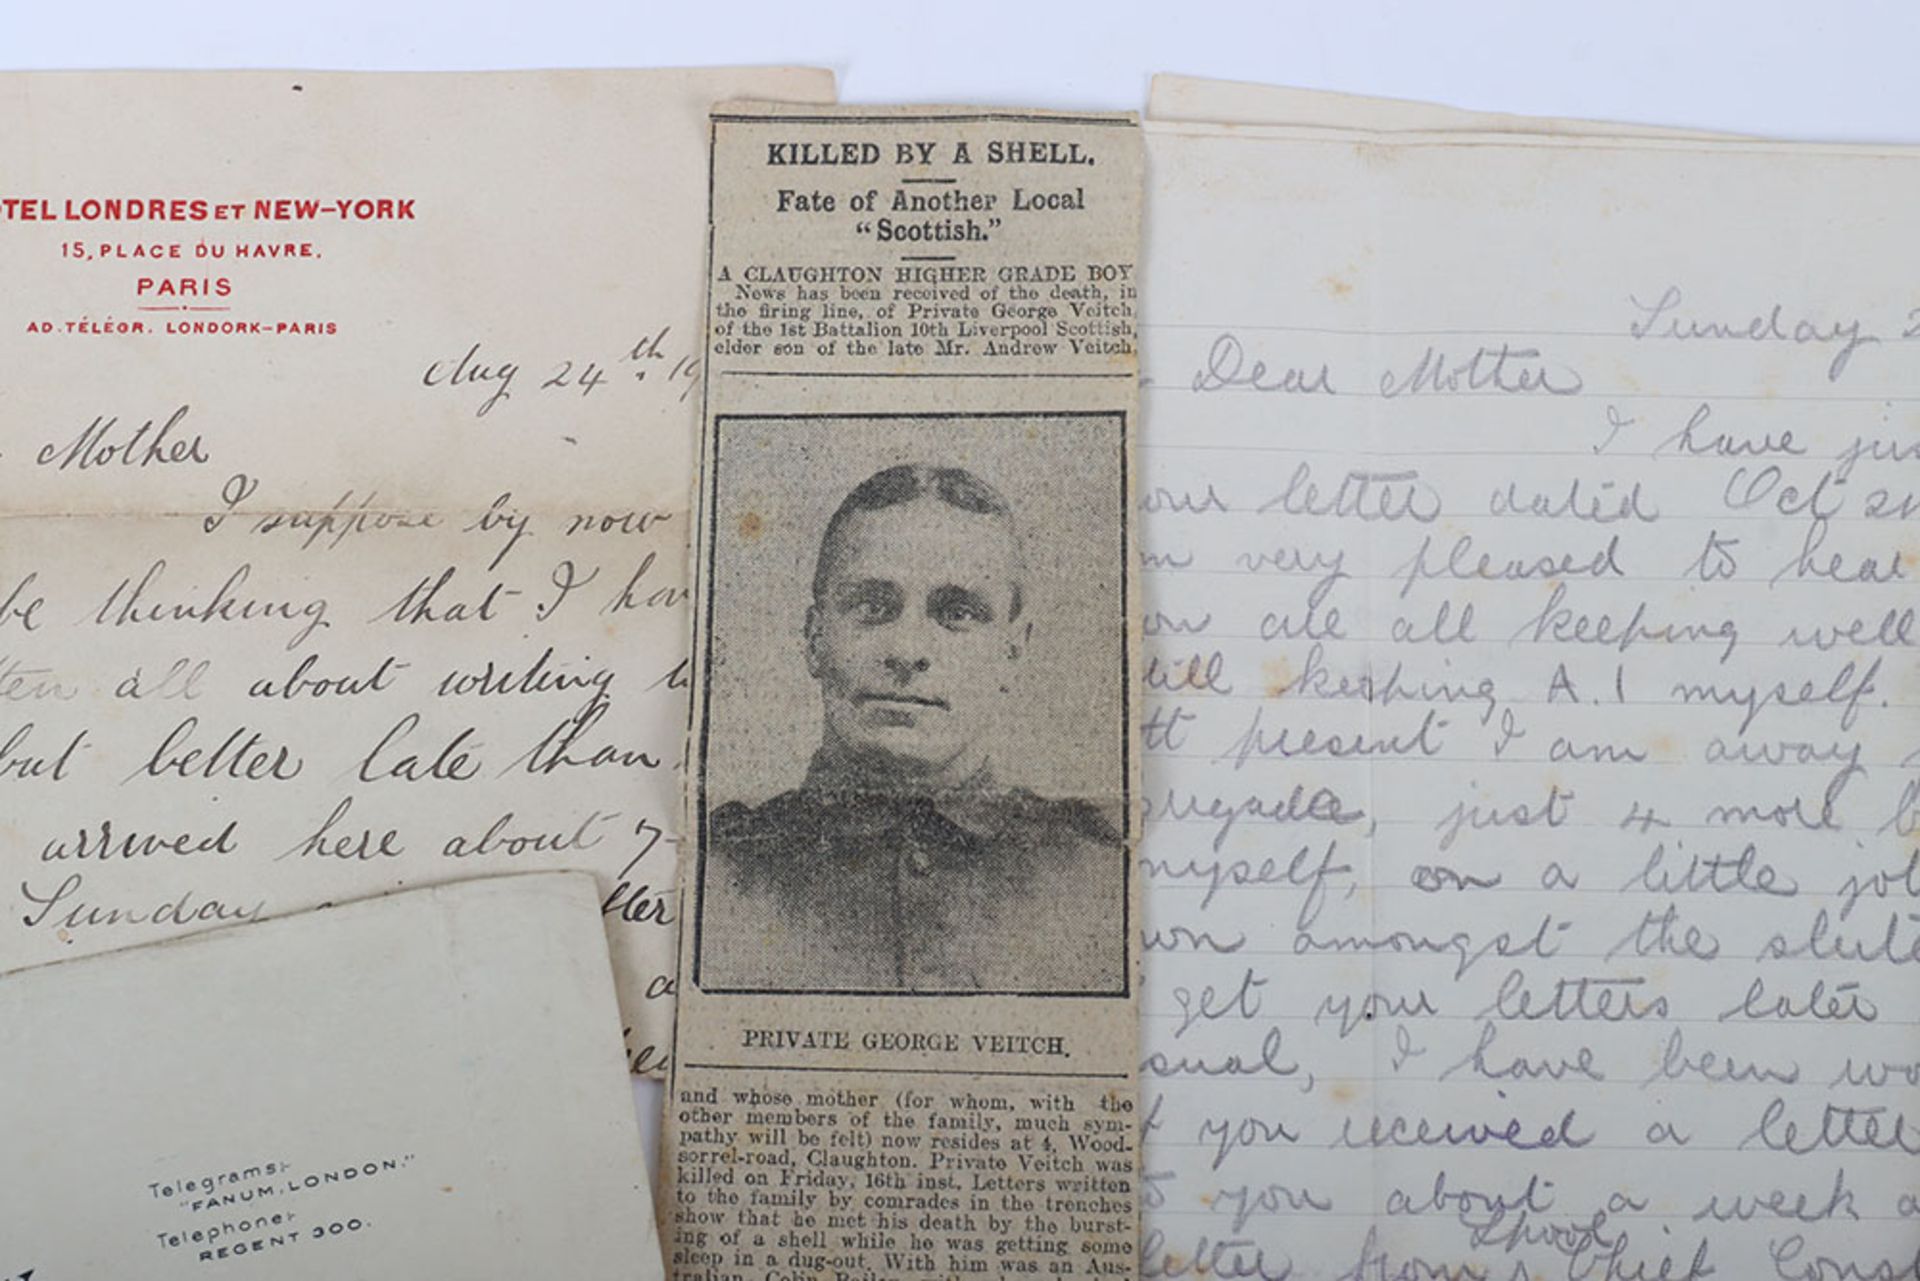 TEL LONDRES ET NEW-YORK
15, PLACE DU HAVRE.
PARIS
AD. TÉLÉGR. LONDORK-PARIS
Aug 24th 19
Mother
I suppose by now
be thinking that I hav
ten all about writing t
but better late than
arrived here about 7
Sunday
tter
a
Telegrams:-
"FANUM, LONDON."
Telephone:-
REGENT 300.
KILLED BY A SHELL.
Fate of Another Local
"Scottish."
A CLAUGHTON HIGHER GRADE BOY
News has been received of the death, in
the firing line, of Private George Veitch,
of the 1st Battalion 10th Liverpool Scottish,
elder son of the late Mr. Andrew Veitch,
PRIVATE GEORGE VEITCH.
and whose mother (for whom, with the
other members of the family, much sym-
pathy will be felt) now resides at 4, Wood-
sorrel-road, Claughton. Private Veitch was
killed on Friday, 16th inst. Letters written
to the family by comrades in the trenches
show that he met his death by the burst-
ing of a shell while he was getting some
sleep in a dug-out. With him was an Aus-
tralian, Colin
Sunday 2
Dear Mother
I have jus
our letter dated Oct
m very pleased to hear
ou are all keeping well
till keeping A.1 myself.
tt present I am away
rigade, just 4 more b
myself, on a little job
wn amongst the
get your letters later
sual, I have been wo
you received a letter
to you about a week a
letter from Chief Const